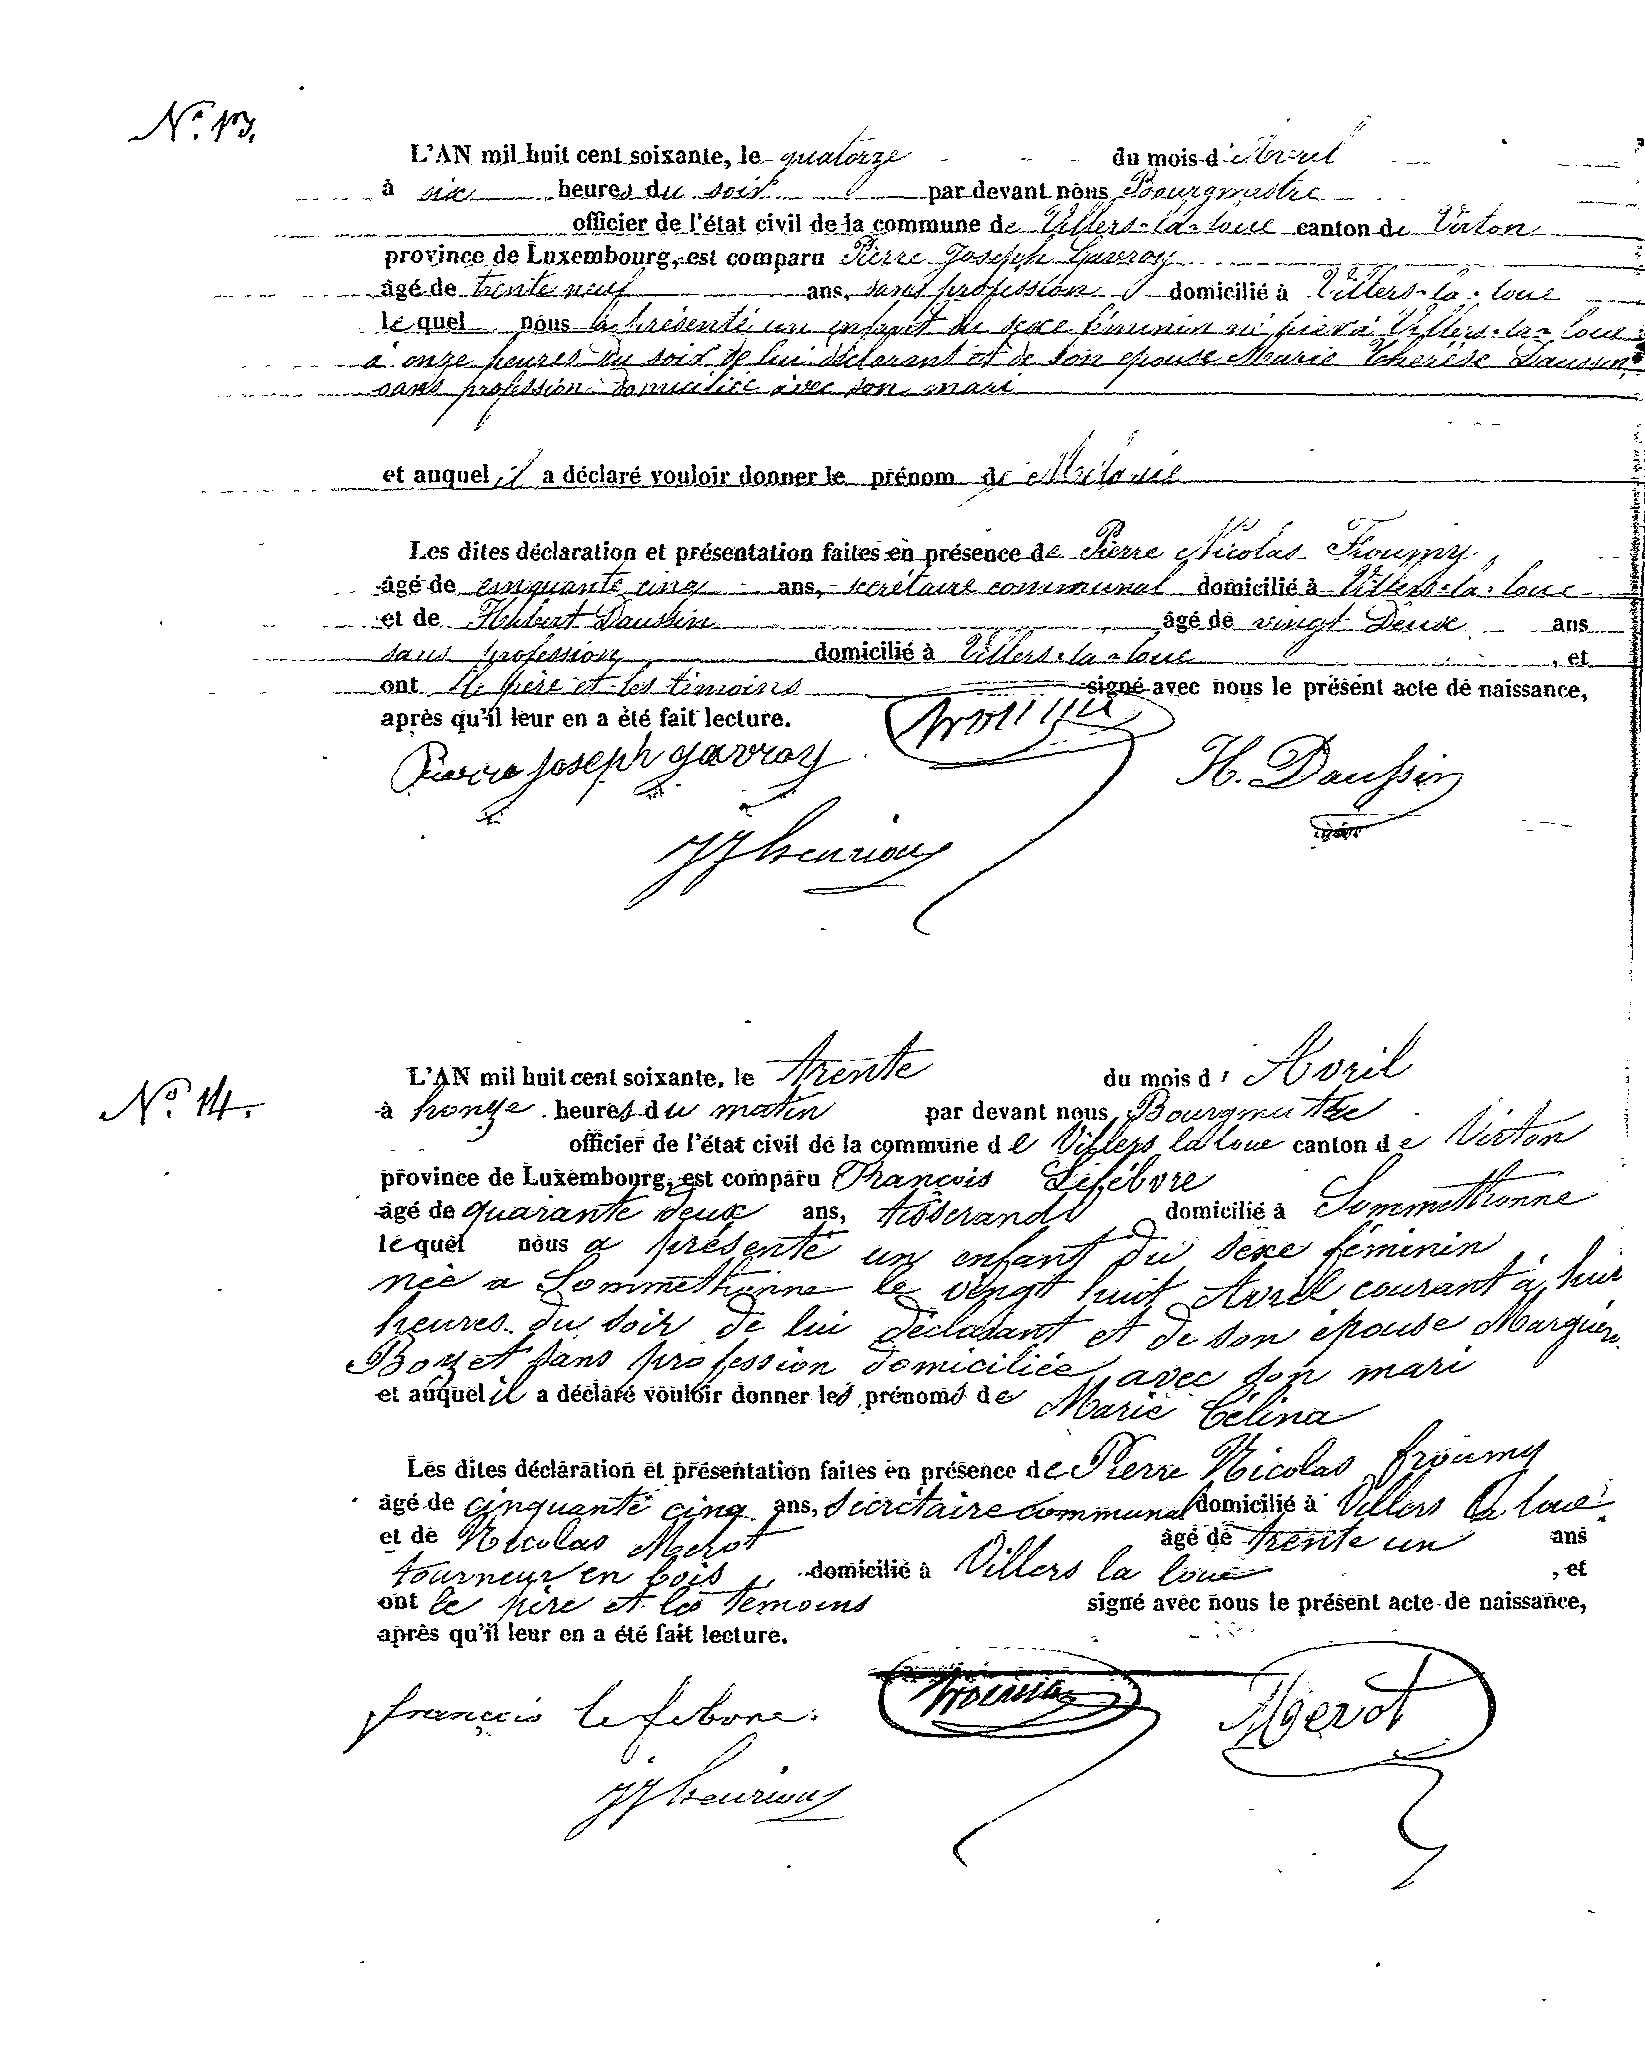 N° 13.
L'AN mil huit cent soixante, le quatorze du mois d'Avril
à six heures du soir par devant nous Bourgmestre
officier de l'état civil de la commune de Villers-la-loue canton de Virton
province de Luxembourg, est comparu Pierre Joseph Gavroy
âgé de trente neuf ans, sans profession domicilié à Villers-la-loue
le quel nous a présenté un enfant du sexe féminin né hier à Villers-la-loue
à onze heures du soir de lui déclarant et de son epouse Marie Therèse Daussin,
sans profession domiciliée avec son mari
et auquel il a déclaré vouloir donner le prénom de Mélanie
Les dites déclaration et présentation faites en présence de Pierre Nicolas Froumy,
âgé de cinquante cinq ans, secrétaire communal domicilié à Villers-la-loue
et de Hubert Daussin âgé de vingt Deux ans
sans profession domicilié à Villers-la-loue , et
ont le père et les témoins signé avec nous le présent acte de naissance,
après qu'il leur en a été fait lecture.
Pierre Joseph gavroy Froumy H. Daussin
N° 14.
L'AN mil huit cent soixante, le trente du mois d' Avril
à honze heures du matin par devant nous Bourgmestre
officier de l'état civil de la commune de Villers la loue canton de Virton
province de Luxembourg, est comparu François Lefébvre
âgé de quarante deux ans, tisserand domicilié à Sommethonne
le quel nous a présenté un enfant du sexe féminin
née a Sommethonne le vingt huit Avril courant à huit
heures du soir de lui déclarant et de son épouse Marguér.
Bozet sans profession domiciliée avec son mari
et auquel il a déclaré vouloir donner les prénoms de Marie Célina
Les dites déclaration et présentation faites en présence de Pierre Nicolas froumy
âgé de cinquante cinq ans, Secrétaire communal domicilié à Villers la loue
et de Nicolas Merot âgé de trente un ans
tourneur en bois domicilié à Villers la loue , et
ont le père et les témoins signé avec nous le présent acte de naissance,
après qu'il leur en a été fait lecture.
françois lefebvre Froumy Merot